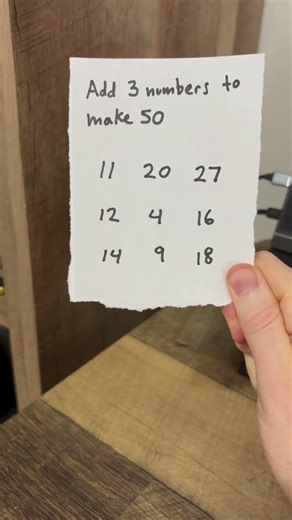 Add 3 numbers to
make 50
11 20 27
12 4 16
14 9 18